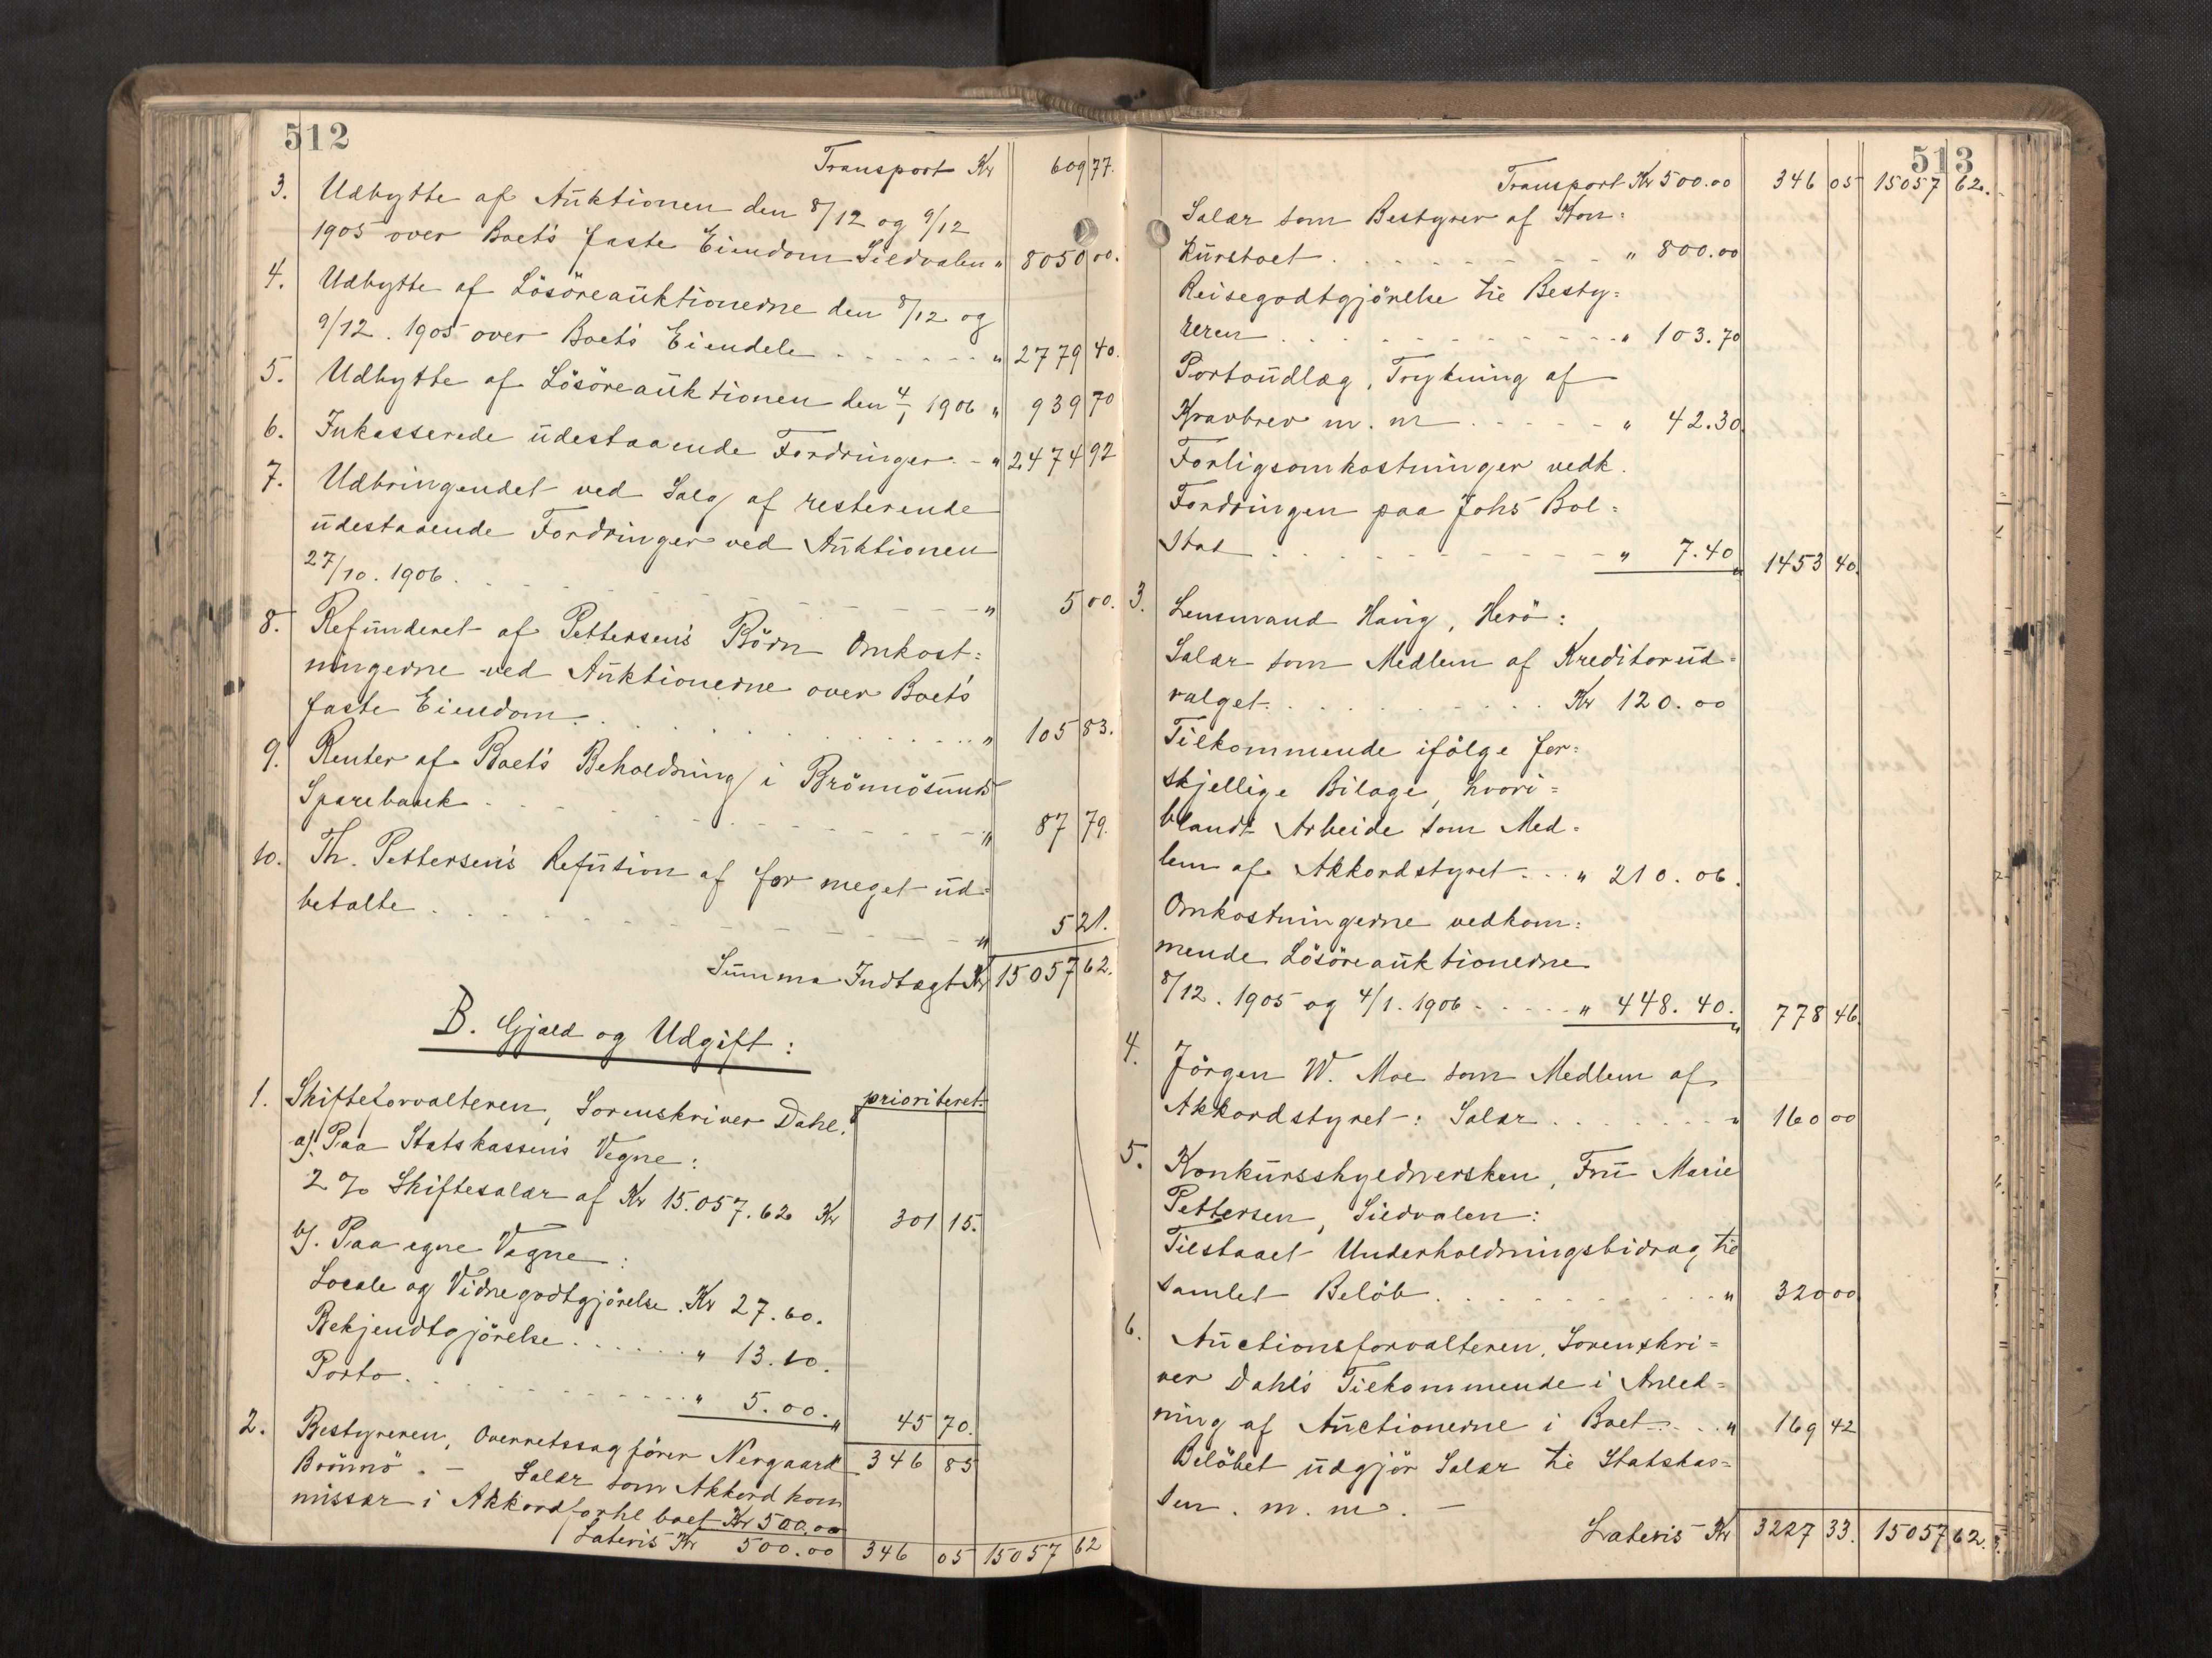 512
Transport Kr 609 77.
3. Udbytte af Auktionen den 8/12 og 9/12
1905 over Boets faste Eiendom Sildvalen " 8050 00.
4. Udbytte af Lösöreauktionerne den 8/12 og
9/12. 1905 over Boets Eiendele . . . . . . " 2779 40.
5. Udbytte af Lösöreauktionen den 4/1 1906 " 939 70
6. Inkasserede udestaaende Fordringer - " 2474 92
7. Udbringendet ved Salg af resterende
udestaaende Fordringer ved Auktionen
27/10. 1906. . . . " 5 00.
8. Refunderet af Pettersens Börn Omkost=
ningerne ved Auktionerne over Boets
faste Eiendom. . . . " 105 83.
9. Renter af Boets Beholdning i Brönnösunds
Sparebank . . . " 87 79.
10. Th. Pettersens Refusion af for meget ud=
betalte . . . " 5 21.
Summa Indtægt Kr 15057 62.
B. Gjæld og Udgift:
prioriteret:
1. Skifteforvalteren, Sorenskriver Dahl.
a). Paa Statskassens Vegne:
2 % Skiftesalær af Kr 15.057.62 Kr 301 15.
b). Paa egne Vegne:
Locale og Vidnegodtgjörelse. Kr 27.60.
Bekjendtgjörelse . . . . . . " 13.10.
Porto. . . . " 5.00. " 45 70.
346 85
2. Bestyreren, Overretssagförer Nergaard
Brönnö. - Salær som Akkordkom
missær i Akkordforhl boet Kr 500.00
Lateris Kr 500.00 346 05 15057 62
513
Transport Kr 500.00 346 05 15057 62.
Salær som Bestyrer af Kon=
kursboet. . . . " 800.00
Reisegodtgjörelse til Besty=
reren . . . " 103.70
Portoudlæg, Trykning af
Kravbrev m. m . . . " 42.30.
Forligsomkostninger vedk.
Fordringen paa Johs Bol=
stad . . . " 7.40 " 1453 40.
3. Lensmand Haug, Herö:
Salær som Medlem af Kreditorud=
valget. . . . Kr 120.00
Tilkommende ifölge for=
skjellige Bilage, hvori=
blandt Arbeide som Med=
lem af Akkordstyret. . . " 210.06.
Omkostningerne vedkom=
mende Lösöreauktionerne
8/12. 1905 og 4/1. 1906 . . . . " 448.40. " 778 46.
4. Jörgen W. Moe som Medlem af
Akkordstyret: Salær . . . . " 160 00
5. Konkursskyldnersken, Fru Marie
Pettersen, Sildvalen:
Tilstaaet Underholdningsbidrag til
samlet Belöb. . . . " 320 00
6. Auctionsforvalteren, Sorenskri=
ver Dahls Tilkommende i Anled=
ning af Auctionerne i Boet . . . " 169 42
Belöbet udgjör Salær til Statskas=
sen. m. m. -
Lateris Kr 3227 33. 15057 62.